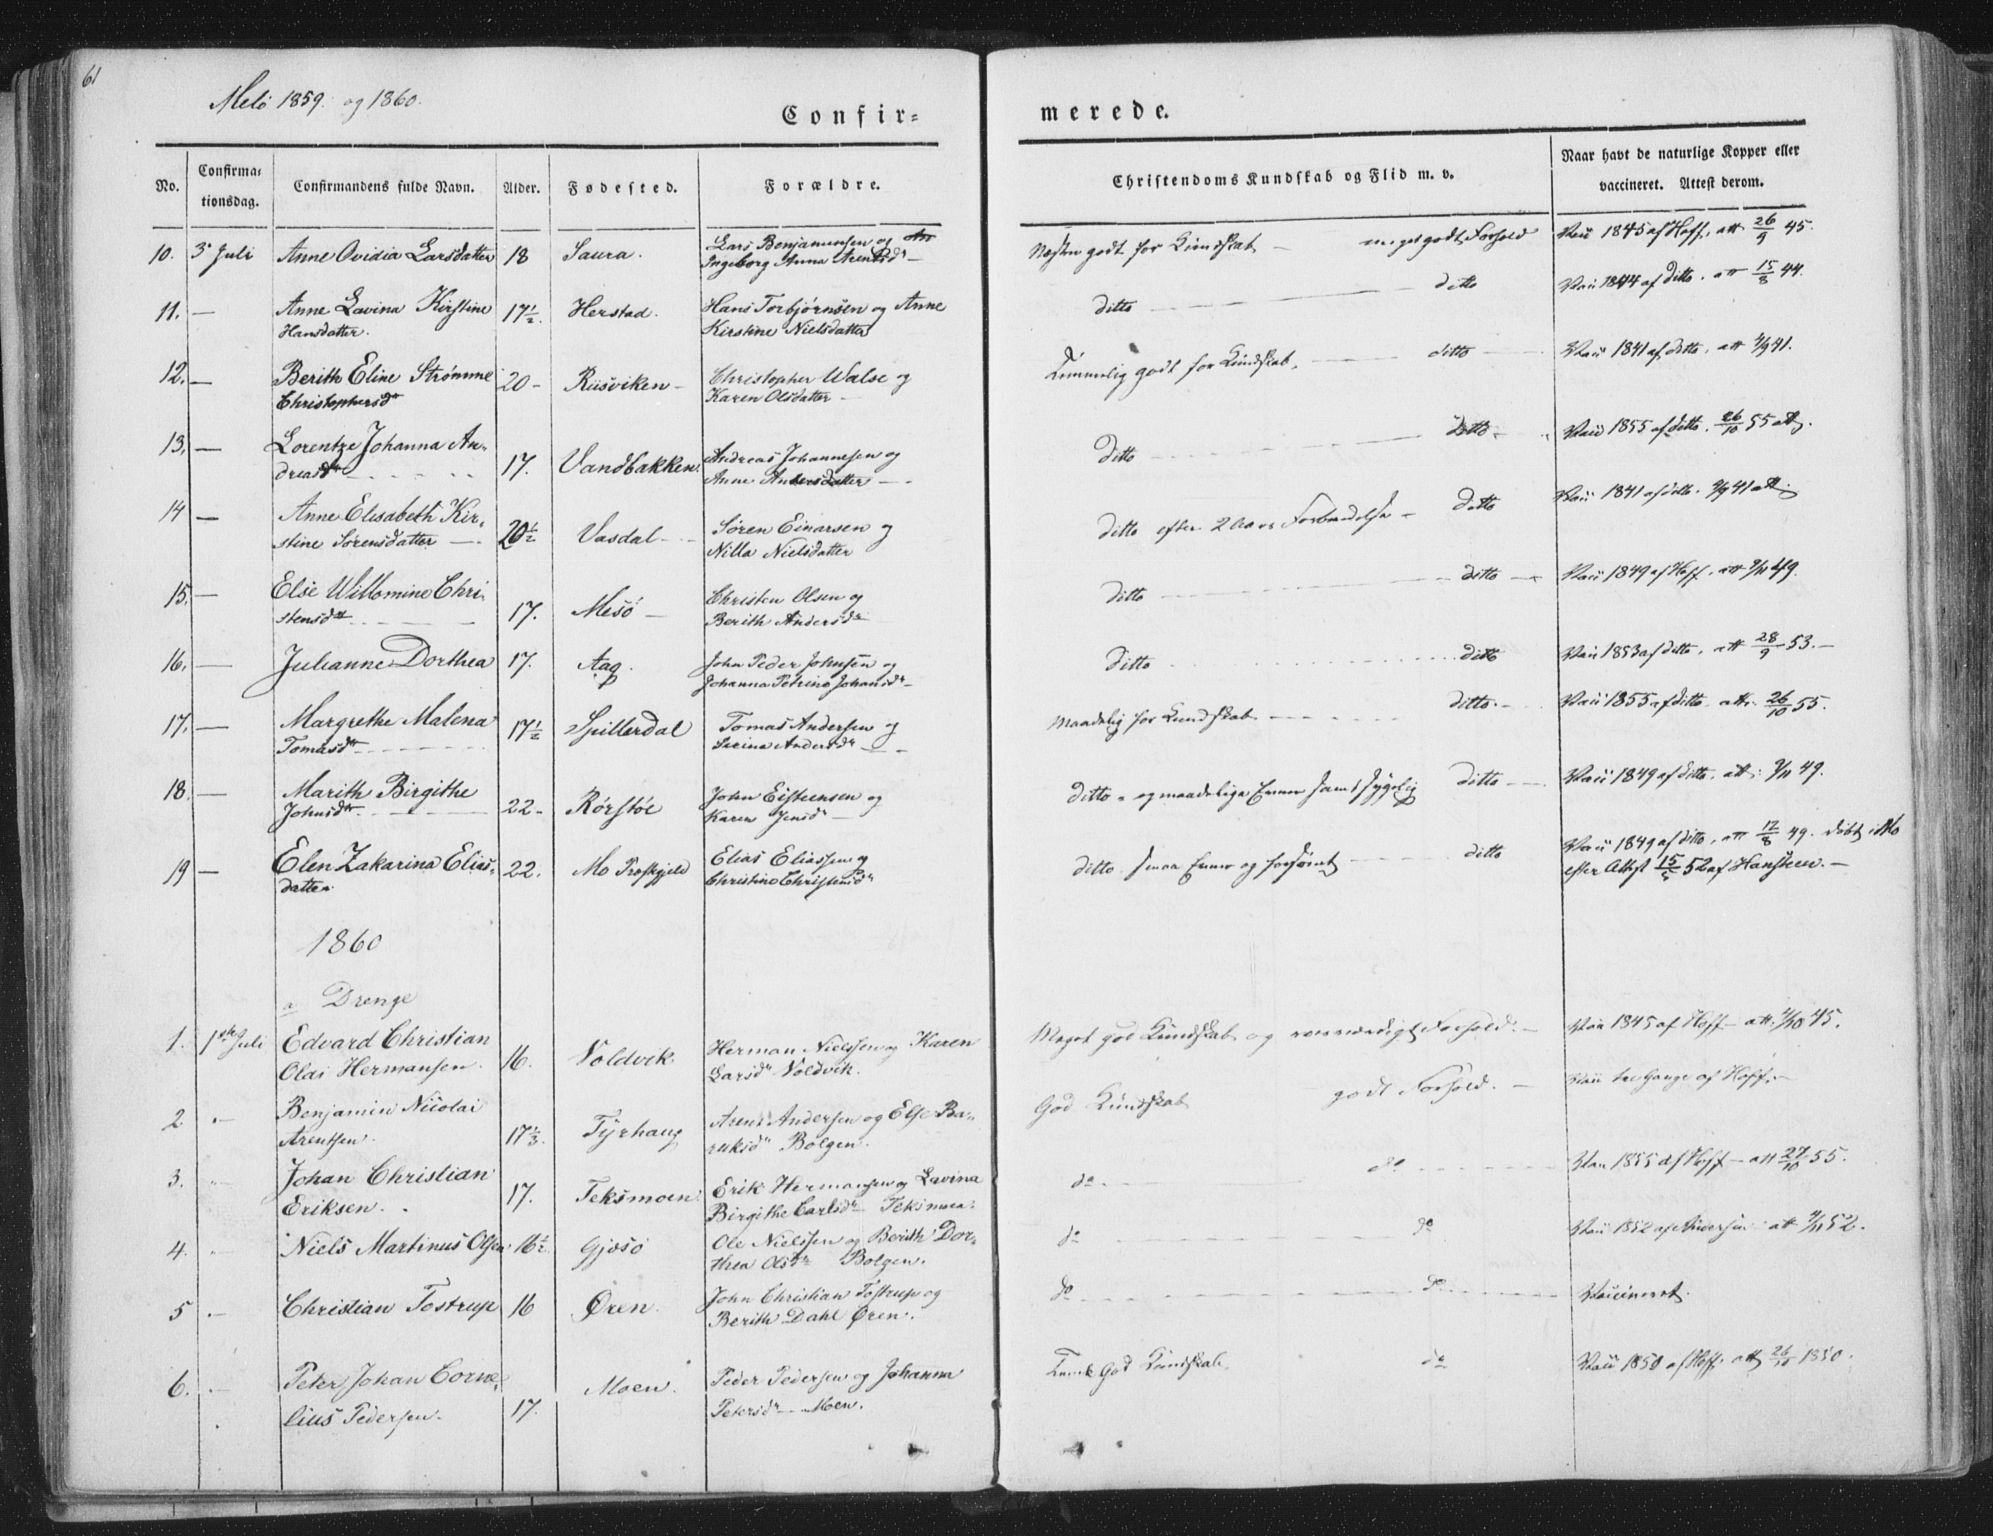 61
Melö 1859. og 1860.
Confir-
merede.
No.
Confirma-
tionsdag.
Confirmandens fulde Navn.
Alder.
Fødested.
Forældre.
Christendoms Kundskab og Flid m. v.
Naar havt de naturlige Kopper eller
vaccineret. Attest derom.
10. 3 Juli Anne Ovidia Larsdatter 18 Saura. Lars Benjaminsen og
Ingeborg Anna Arentsdr
Næsten godt for Kundskab - meget godt Forhold Vaci 1845 af Hoff, att 26/9 45.
11. - Anne Lavina Kirstine 17½. Herstad. Hans Torbjørnsen og Anne
Hansdatter. Kirstine Nielsdatter
ditto - ditto Vaci 1844 af ditto. att 15/8 44.
12. - Berith Eline Strømme 20 - Riisviken - Christopher Walse og
Christophersdr Karen Olsdatter -
Temmelig godt for Kundskab. - ditto - Vaci 1841 af ditto, att 4/9 41.
13. - Lorentze Johanna An-
dreasdr 17. Vandbakken. Andreas Johannesen og
Anne Andersdatter -
ditto - ditto - Vaci 1855 af ditto. 26/10 55 att.
14 - Anne Elisabeth Kir-
stine Sørensdatter - 20½ Vasdal - Søren Einarsen og
Nilla Nielsdatter
ditto efter 2 Aars Forberedelse - ditto Vaci 1841 af ditto.
15. - Else Willomine Chri-
stensdtr 17. Mesö - Christen Olsen og
Berith Andersdr
ditto - ditto - Vaci 1849 af Hoff, att 9/11 49.
16. - Julianne Dorthea 17. Aag. John Peder Johnsen og
Johanna Petrine Johansdr -
ditto ditto Vaci 1853 af ditto, att 28/9 53. -
17. - Margrethe Malena 17½ Spillerdal Tomas Andersen og
Tomasdr Andersdr -
Maadelig for Kundskab - ditto. - Vaci 1855 af ditto att. 26/10 55.
18. - Marith Birgithe
Johnsdr 22 - Rörstöe John Eisteensen og
Karen Jensdr -
ditto - og maadelige Evner samt sygelig ditto - Vaci 1849 af ditto, att: 9/11 49.
19 - Elen Zakarina Elias-
datter. 22. Mo Præstgjeld Elias Eliassen og
Christine Christensdr
ditto smaa Evner og forsømt - ditto Vaci 1849 af ditto, att 17/8 49. döbt i Mo
efter Attest 15/5 52 af Hansteen. -
1860
a Drenge
1. 1ste Juli Edvard Christian
Olai Hermansen. 16. Voldvik. Herman Nielssen og Karen
Larsdr Voldvik.
Meget god Kundskab og roesværdigt Forhold. - Vaci 1845 af Hoff - att. 4/10 45.
2 - Benjamin Nicolai
Arentsen. 17⅓. Tyrhaug Arent Andersen og Else Ba-
ruksdr Bolgen.
God Kundskab godt Forhold. - Vaci tre Gange af Hoff. -
3. - Johan Christian
Eriksen. 17. Teksmoen Erik Hermansen og Lavina
Birgithe Carlsdr Teksmoen.
do - do - Vaci 1855 af Hoff - att 27/10 55.
4. Niels Martinus Olsen 16½ Gjesö Ole Nielssen og Berith Dor-
thea Olsdr Bolgen.
do - do Vaci 1852 af Andersen att 4/11 52.
5 - Christian Tostrup 16 Øren. John Christian Tostrup og
Berith Dahl Øren.
do - do - Vaccineret.
6. - Peter Johan Corne-
lius Pedersen. 17. Moen. Peder Pedersen og Johanna
Petersdr - Moen.
God Kundskab. do Vaci 1850 af Hoff. att 26/10 1850.